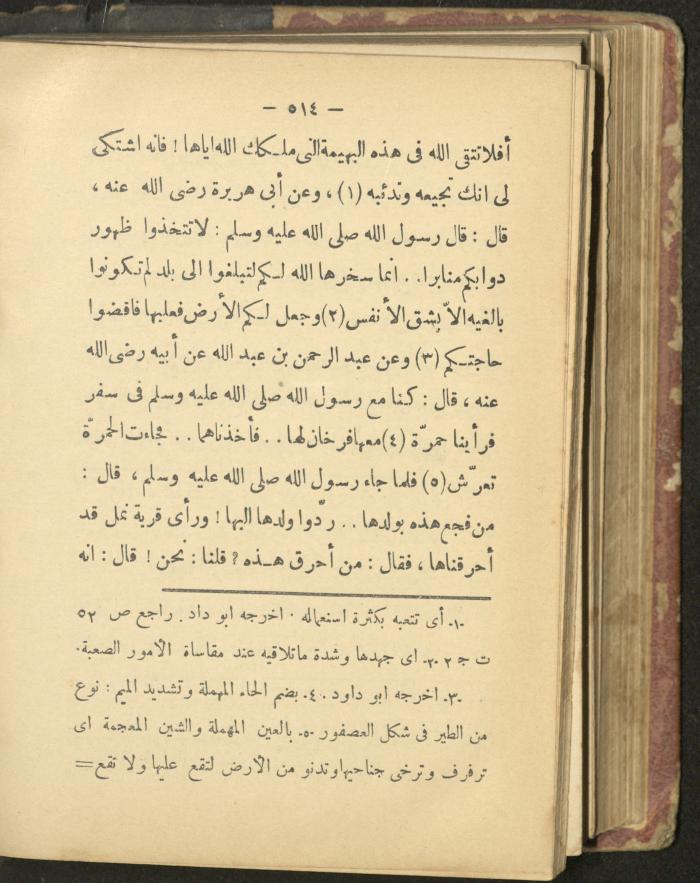 — ٥١٤ —
أفلا تتقى الله فى هذه البهيمة التى ملكك الله اياها ! فانه اشتكى
لى انك تجيعه وتدئبه (١) ، وعن أبى هريرة رضى الله عنه ،
قال : قال رسول الله صلى الله عليه وسلم : لا تتخذوا ظهور
دوابكم منابرا . . انما سخرها الله لكم لتبلغوا الى بلد لم تكونوا
بالغيه الاّ بشق الأنفس (٢) وجعل لكم الأرض فعليها فاقضوا
حاجتكم (٣) وعن عبد الرحمن بن عبد الله عن أبيه رضى الله
عنه ، قال : كنا مع رسول الله صلى الله عليه وسلم فى سفر
فرأينا حمرّة (٤) معها فرخان لها . . فأخذناهما . . فجاءت الحمرّة
تعرّش (٥) فلما جاء رسول الله صلى الله عليه وسلم ، قال :
من فجع هذه بولدها . . ردّوا ولدها اليها ! ورأى قرية نمل قد
أحرقناها ، فقال : من أحرق هذه ? قلنا : نحن ! قال : انه
-١. أى تتعبه بكثرة استعماله . اخرجه ابو داد . راجع ص ٥٢
ت ج ٢ -٢. اى جهدها وشدة ماتلاقيه عند مقاساة الأمور الصعبة.
-٣. اخرجه ابو داود . -٤. بضم الحاء المهملة وتشديد الميم : نوع
من الطير فى شكل العصفور -٥. بالعين المهملة والشين المعجمة اى
ترفرف وترخى جناحيها وتدنو من الأرض لتقع عليها ولا تقع =